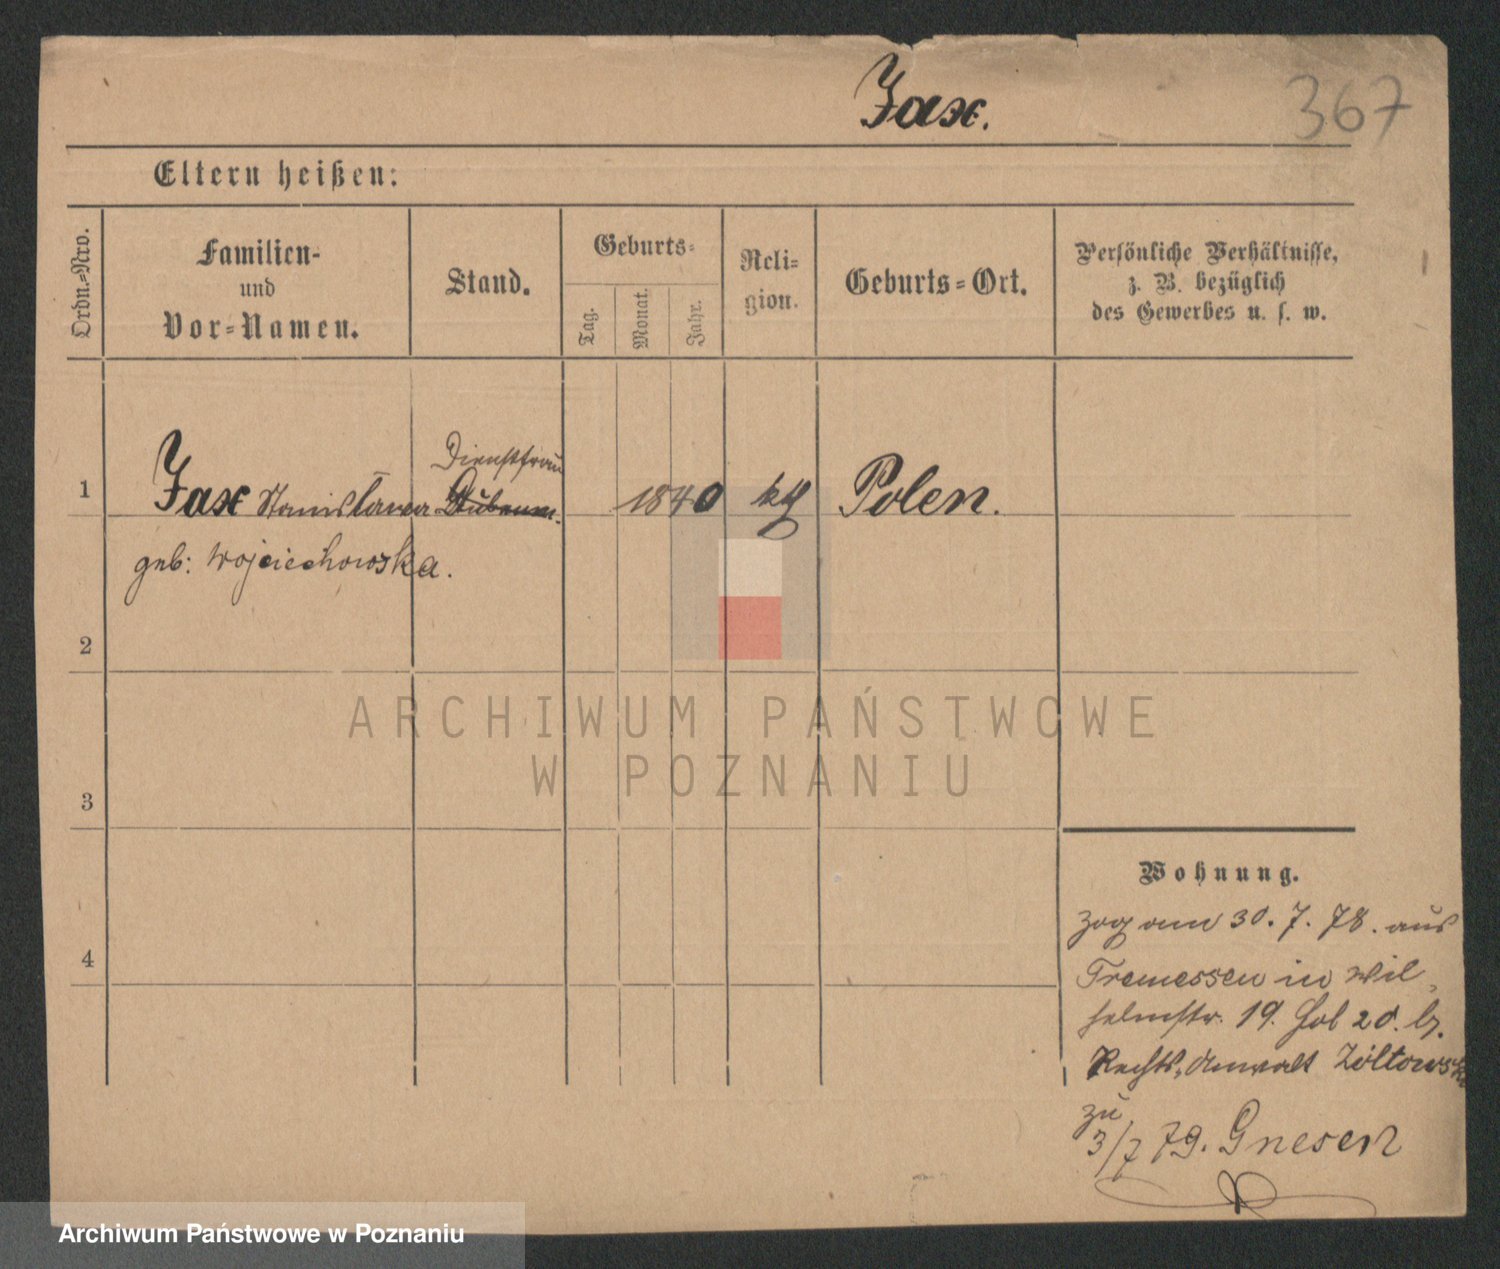 Jax.
367
Eltern heißen:
Ordn.=Nro.
Familien-
und
Vor=Namen.
Stand.
Geburts=
Tag.
Monat.
Jahr.
Reli=
gion.
Geburts=Ort.
Persönliche Verhältnisse,
z. B. bezüglich
des Gewerbes u. s. w.
Dienstfrau
1 Jax Stanisława 1840 kth Polen.
geb: Wojciechowska.
2
3
4
Wohnung.
zog am 30. 7. 78. aus
Tremessen in Wil-
helmstr. 19. Hof 20. b.
Rechts-Anwalt Zóltowski
zu
3/7 79. Gnesen
ARCHIWUM PAŃSTWOWE
W POZNANIU
Archiwum Państwowe w Poznaniu